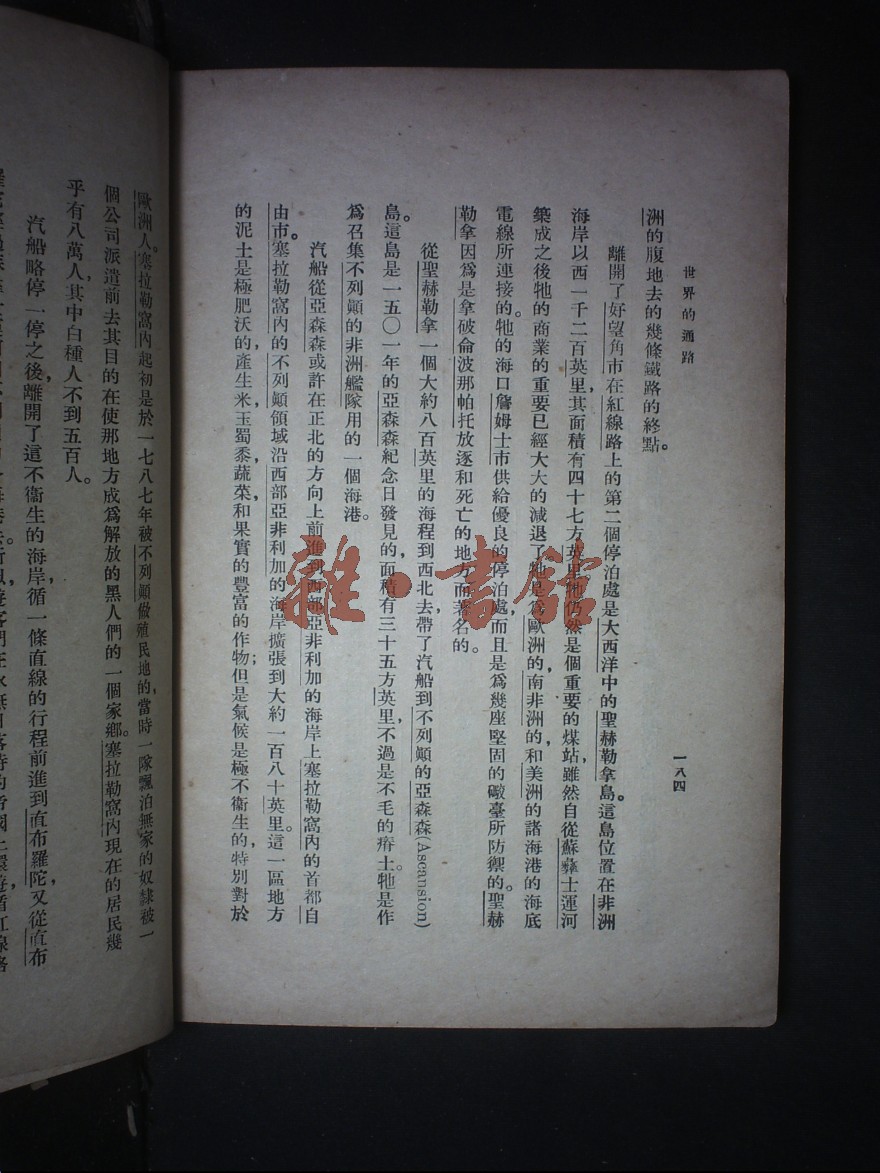 世界的通路
一八四
洲的腹地去的幾條鐵路的終點。
離開了好望角市在紅線路上的第二個停泊處是大西洋中的聖赫勒拿島。這島位置在非洲
海岸以西一千二百英里，其面積有四十七方英里。牠仍然是個重要的煤站，雖然自從蘇彝士運河
築成之後牠的商業的重要已經大大的減退了。牠是爲歐洲的，南非洲的，和美洲的諸海港的海底
電線所連接的。牠的海口詹姆士市供給優良的停泊處，而且是爲幾座堅固的礮臺所防禦的。聖赫
勒拿因爲是拿破侖波那帕托放逐和死亡的地方而著名的。
從聖赫勒拿一個大約八百英里的海程到西北去帶了汽船到不列顛的亞森森(Ascansion)
島。這島是一五〇一年的亞森森紀念日發見的，面積有三十五方英里，不過是不毛的瘠土。牠是作
爲召集不列顛的非洲艦隊用的一個海港。
汽船從亞森森或許在正北的方向上前進到西部亞非利加的海岸上塞拉勒窩內的首都自
由市。塞拉勒窩內的不列顛領域沿西部亞非利加的海岸擴張到大約一百八十英里。這一區地方
的泥土是極肥沃的，產生米，玉蜀黍，蔬菜，和果實的豐富的作物；但是氣候是極不衞生的，特別對於
歐洲人。塞拉勒窩內起初是於一七八七年被不列顛做殖民地的，當時一隊飄泊無家的奴隸被一
個公司派遣前去，其目的在使那地方成爲解放的黑人們的一個家鄉。塞拉勒窩內現在的居民幾
乎有八萬人，其中白種人不到五百人。
汽船略停一停之後，離開了這不衞生的海岸，循一條直線的行程前進到直布羅陀，又從直布
雜·書館